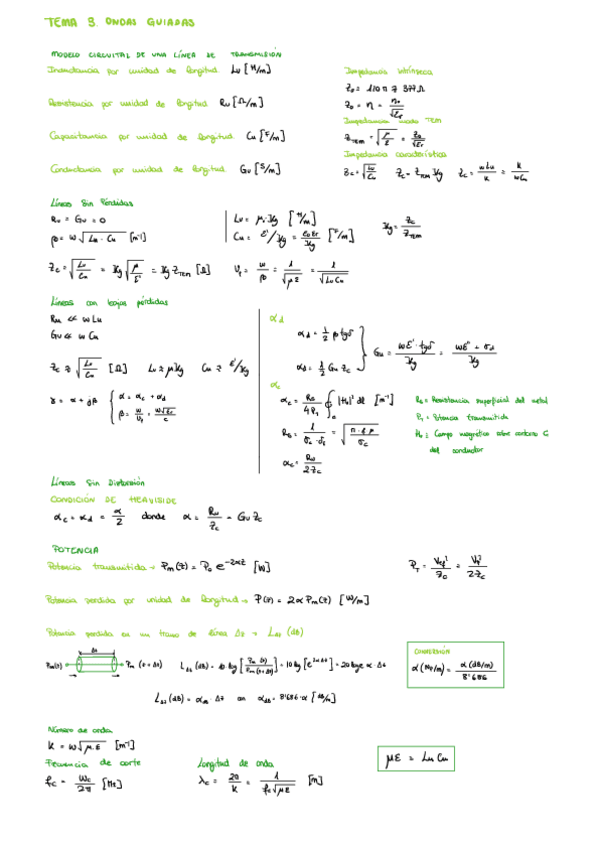 TEMA 3. ONDAS GUIADAS
MODELO CIRCUITAL DE UNA LÍNEA DE TRANSMISIÓN
Inductancia por unidad de longitud Lu [H/m]
Resistencia por unidad de longitud Ru [Ω/m]
Capacitancia por unidad de longitud Cu [F/m]
Conductancia por unidad de longitud Gu [S/m]
Impedancia intrínseca
Z₀ = 120π ≈ 377Ω
Z₀ = η = η₀/√εr
Impedancia modo TEM
Z_TEM = √(μ/ε) = Z₀/√εr
Impedancia característica
Zc = √(Lu/Cu) Zc = Z_TEM Kg Zc = wLu/K = K/wCu
Líneas sin Pérdidas
Ru = Gu = 0
β = w√(Lu·Cu) [m⁻¹]
Zc = √(Lu/Cu) = Kg√(μ/ε') = Kg Z_TEM [Ω]
Lu = μ·Kg [H/m]
Cu = ε'/Kg = ε₀εr/Kg [F/m]
Vf = w/β = 1/√(με) = 1/√(LuCu)
Kg = Zc/Z_TEM
Líneas con bajas pérdidas
Ru << wLu
Gu << wCu
Zc ≈ √(Lu/Cu) [Ω] Lu ≈ μKg Cu ≈ ε'/Kg
γ = α + jβ { α = αc + αd
β = w/Vf = w√εr/c
αd
αd = 1/2 β tgδ
αd = 1/2 Gu Zc
Gu = wε'·tgδ/Kg = wε'' + σd/Kg
αc
αc = Rs/4PT ∮ |Ht|² dl [m⁻¹]
Rs = 1/σc·δs = √(π·f·μ/σc)
αc = Ru/2Zc
Rs = Resistencia superficial del metal
PT = Potencia transmitida
Ht = Campo magnético sobre contorno C
del conductor
Líneas Sin Distorsión
CONDICIÓN DE HEAVISIDE
αc = αd = α/2 donde α = Ru/Zc = Gu Zc
POTENCIA
Potencia transmitida → Pm(z) = P₀ e^(-2αz) [W]
PT = Vef²/Z₀ = Vf²/2Zc
Potencia perdida por unidad de longitud → P(z) = 2αPm(z) [W/m]
Potencia perdida en un tramo de línea Δz → LΔz (dB)
Δz
Pm(z) → Pm (z+Δz)
LΔz (dB) = 10 log [Pm (z)/Pm (z+Δz)] = 10 log [e^(2αΔz)] = 20 log e α·Δz
LΔz (dB) = αdB·Δz con αdB = 8'686·α [dB/m]
CONVERSIÓN
α (Np/m) = α (dB/m)/8'686
Número de onda
K = w√(μ·ε) [m⁻¹]
Frecuencia de corte
fc = wc/2π [Hz]
Longitud de onda
λc = 2π/K = 1/fc√(με) [m]
με = Lu Cu